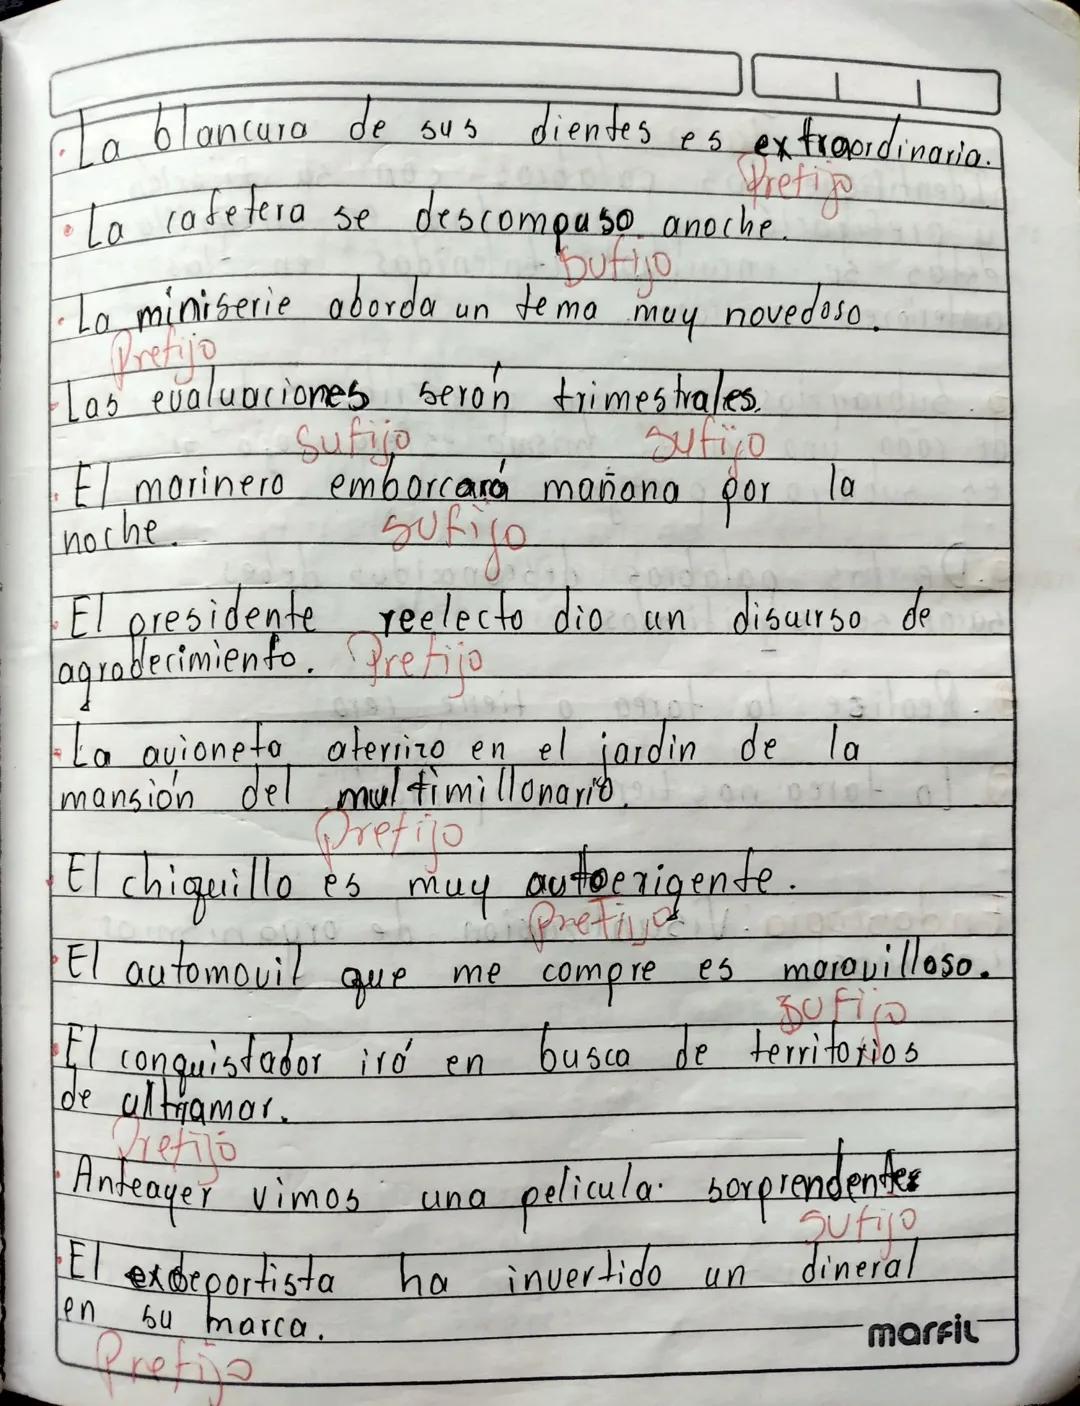 La blancura de sus dientes es extraordinaria.
Prefijo
La cafetera se descompuso anoche.
Sufijo
La miniserie aborda un tema muy novedoso.
Prefijo
Las evaluaciones serán trimestrales.
Sufijo Sufijo
El marinero embarcará mañana por la
noche.
Sufijo
El presidente reelecto dio un discurso de
agradecimiento. Prefijo
La avioneta aterrizo en el jardin de la
mansión del multimillonario.
Prefijo
El chiquillo es muy autoexigente.
Prefijo
El automovil que me compre es maravilloso.
Sufijo
El conquistador irá en busca de territorios
de ultramar.
Prefijo
Anteayer vimos una pelicula sorprendente
Sufijo
El exdeportista ha invertido un dineral
en su marca.
Prefijo
marfil